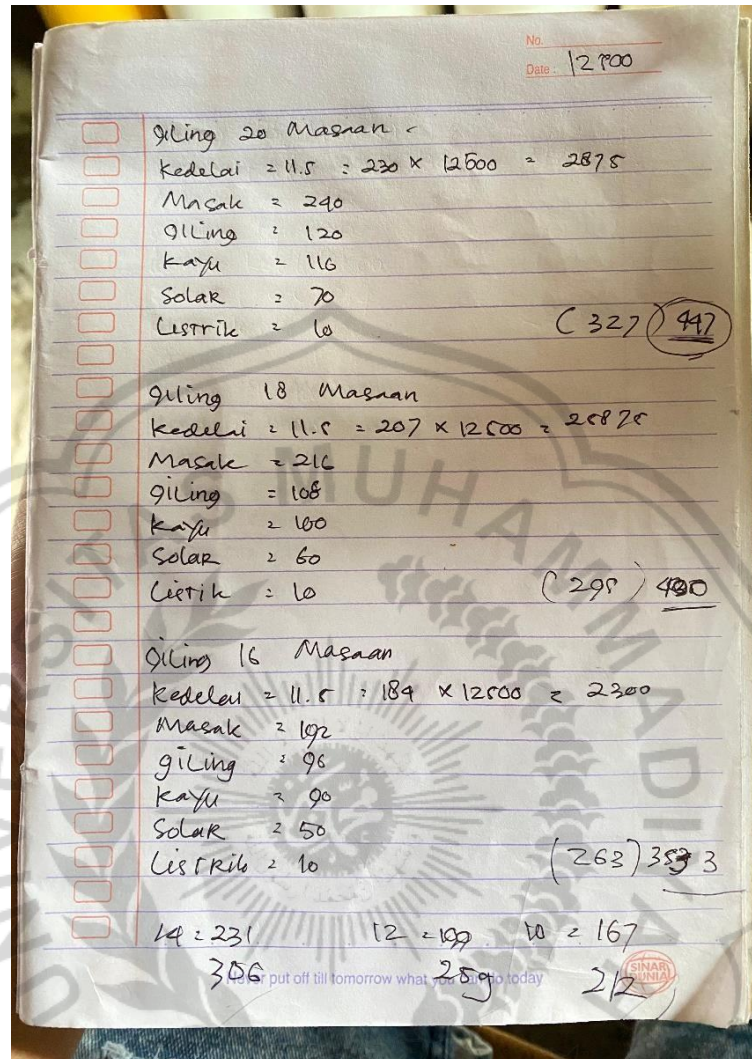 No.
Date : 12500
giling 20 Masaan
kedelai = 11.5 = 230 x 12500 = 2875
Masak = 240
giling = 120
kayu = 116
Solar = 70
Listrik = 10 (327) 447
giling 18 Masaan
kedelai = 11.5 = 207 x 12500 = 25875
Masak = 216
giling = 108
kayu = 100
Solar = 60
Listik = 10 (295)
giling 16 Masaan
kedelai = 11.5 = 184 x 12500 = 2300
Masak = 192
giling = 96
kayu = 90
Solar = 50
Listrik = 10 (263)
14 = 231 12 = 199 10 = 167
306 259 212
put off till tomorrow what you today
SINAR DUNIA
MUHAMMADI